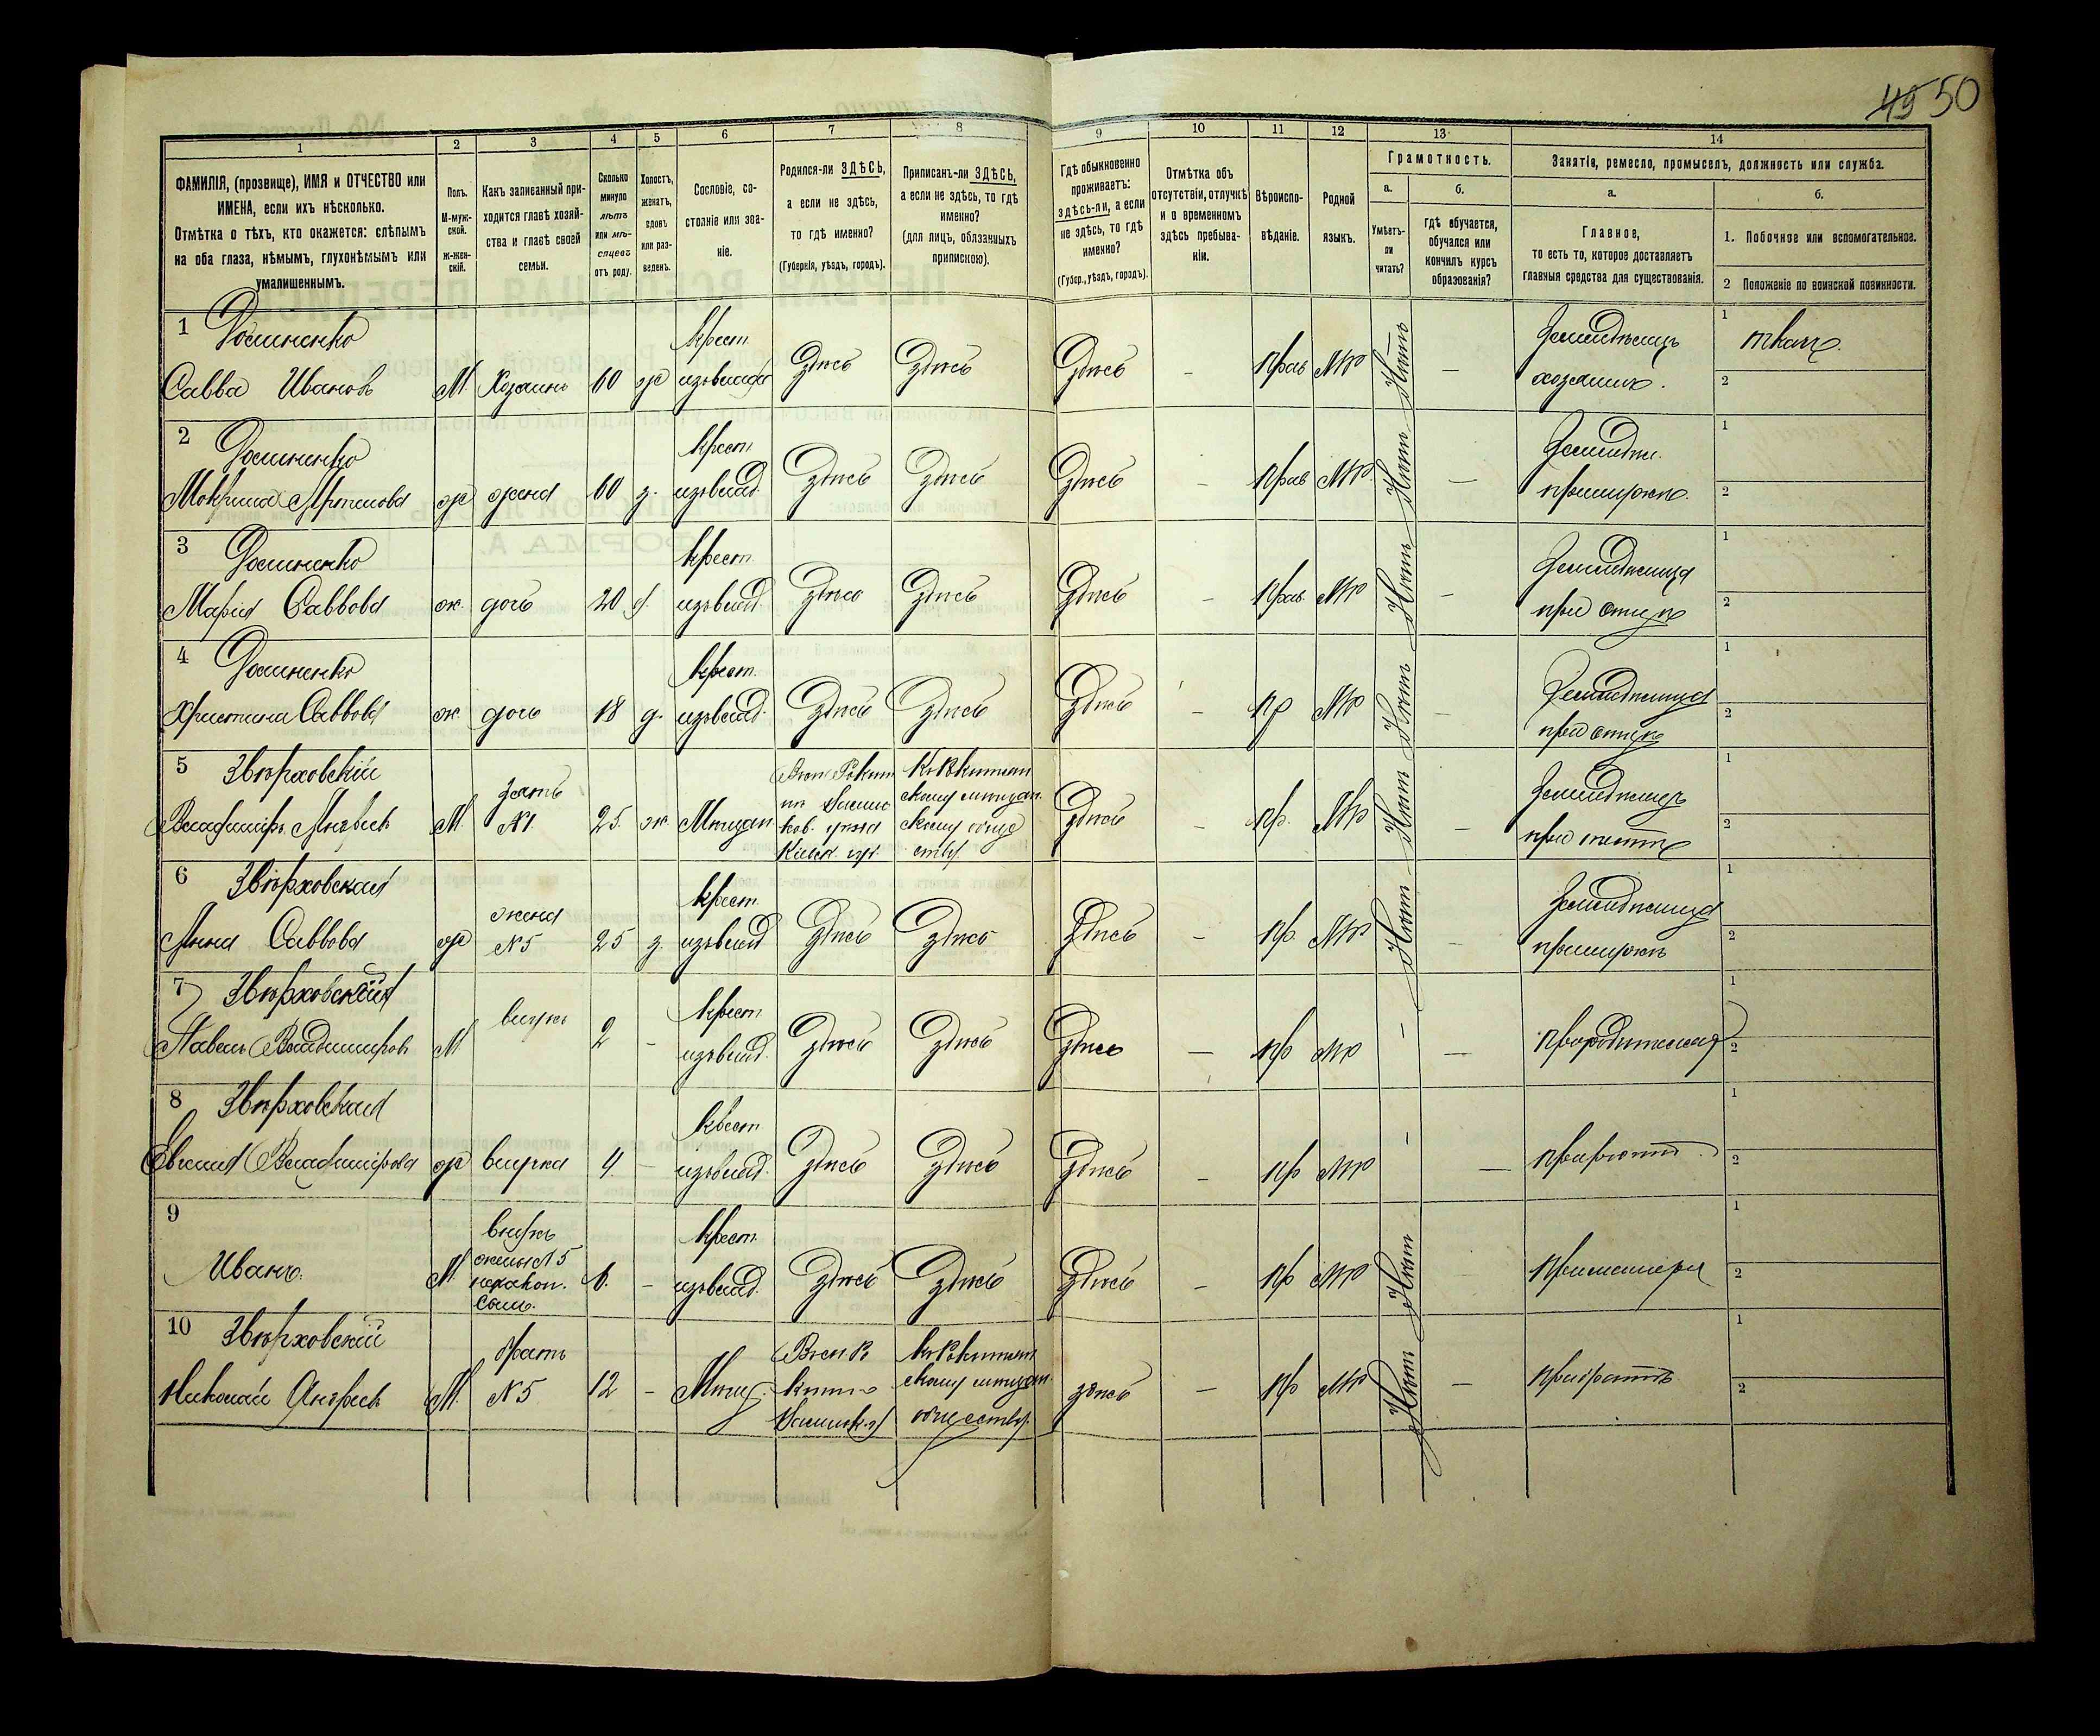 49 50
1 2 3 4 5 6 7 8 9 10 11 12 13 14
ФАМИЛІЯ, (прозвище), ИМЯ и ОТЧЕСТВО или
ИМЕНА, если ихъ нѣсколько.
Отмѣтка о тѣхъ, кто окажется: слѣпымъ
на оба глаза, нѣмымъ, глухонѣмымъ или
умалишеннымъ.
Полъ.
М-муж-
ской.
Ж-жен-
скій.
Какъ записанный при-
ходится главѣ хозяй-
ства и главѣ своей
семьи.
Сколько
минуло
лѣтъ
или мѣ-
сяцевъ
отъ роду.
Холостъ,
женатъ,
вдовъ
или раз-
веденъ.
Сословіе, со-
стояніе или зва-
ніе.
Родился-ли ЗДѢСЬ,
а если не здѣсь,
то гдѣ именно?
(Губернія, уѣздъ, городъ).
Приписанъ-ли ЗДѢСЬ,
а если не здѣсь, то гдѣ
именно?
(для лицъ, обязанныхъ
припискою).
Гдѣ обыкновенно
проживаетъ:
здѣсь-ли, а если
не здѣсь, то гдѣ
именно?
(Губер., уѣздъ, городъ).
Отмѣтка объ
отсутствіи, отлучкѣ
и о временномъ
здѣсь пребыва-
ніи.
Вѣроиспо-
вѣданіе.
Родной
языкъ.
Грамотность.
а.
Умѣетъ-
ли
читать?
б.
гдѣ обучается,
обучался или
кончилъ курсъ
образованія?
Занятіе, ремесло, промыселъ, должность или служба.
а.
Главное,
то есть то, которое доставляетъ
главныя средства для существованія.
б.
1. Побочное или вспомогательное.
2 Положеніе по воинской повинности.
1
Савва Ивановъ
М. Хозяинъ 60 ж
крест.
изъ влад.
здѣсь здѣсь здѣсь - прав МР Нѣтъ -
Земледѣлецъ
хозяинъ.
1 ткачъ.
2
2
ж жена 60 з.
крест.
изъ влад.
здѣсь здѣсь здѣсь - прав МР Нѣтъ -
при мужѣ.
1
2
3
Марія Саввова
ж. дочь 20 д.
крест.
изъ влад.
здѣсь здѣсь здѣсь - прав. МР Нѣтъ -
Земледѣлица
при отцѣ
1
2
4
Христина Саввова
ж. дочь 18 д.
крест.
изъ влад.
здѣсь здѣсь здѣсь - пр МР Нѣтъ -
Земледѣлица
при отцѣ
1
2
5 Звѣрховскій
М.
зять
№1.
25. ж. Мѣщан.
здѣсь - пр. МР Нѣтъ -
Земледѣлецъ
при тестѣ
1
2
6 Звѣрховская
Анна Саввова
ж
жена
№5
25 з.
крест.
изъ влад.
здѣсь здѣсь здѣсь - пр. МР Нѣтъ -
Земледѣлица
при мужѣ
1
2
7 Звѣрховскій
Павелъ Владимировъ
М внукъ 2 -
крест.
изъ влад.
здѣсь здѣсь здѣсь - пр МР - -
1
2
8 Звѣрховская
Владимірова
ж внучка 4. -
крест
изъ влад.
здѣсь здѣсь здѣсь - пр МР - -
1
2
9
Иванъ.
М
внукъ
жены №5
незакон.
сынъ.
6. -
крест.
изъ влад.
здѣсь здѣсь здѣсь - пр МР Нѣтъ
При матери
1
2
10 Звѣрховскій
Николай Андреевъ
М.
братъ
№5
12 - Мѣщ.
мѣщан.
обществу.
здѣсь - пр МР Нѣтъ -
При братѣ
1
2